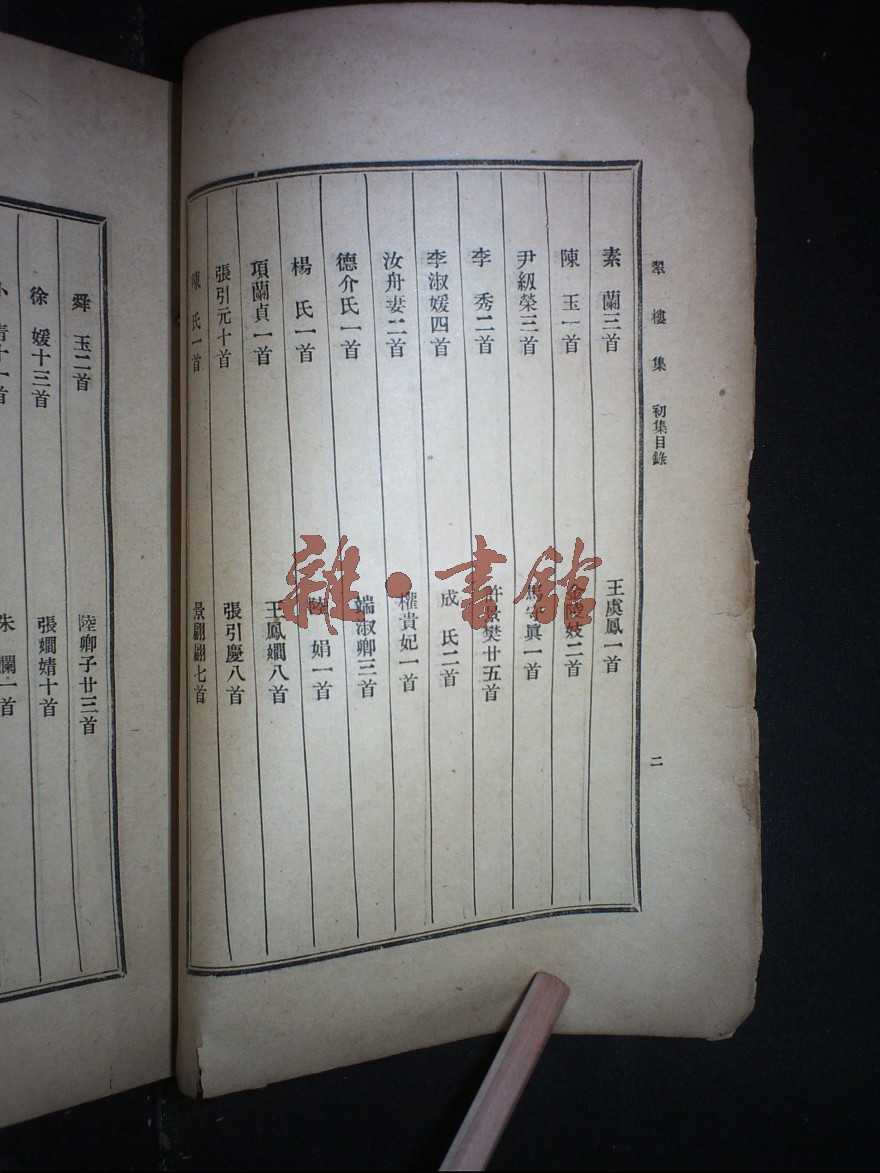 翠樓集 初集目錄 二
素蘭三首 王虞鳳一首
陳玉一首 金陵妓二首
尹紉榮三首 馬守眞一首
李秀二首 許景樊廿五首
李淑媛四首 成氏二首
汝舟妻二首 權貴妃一首
德介氏一首 端淑卿三首
楊氏一首 陸娟一首
項蘭貞一首 王鳳嫺八首
張引元十首 張引慶八首
陳氏一首 景翩翩七首
舜玉二首 陸卿子廿三首
徐媛十三首 張嫺婧十首
小青十一首 朱斕一首
雜·書館